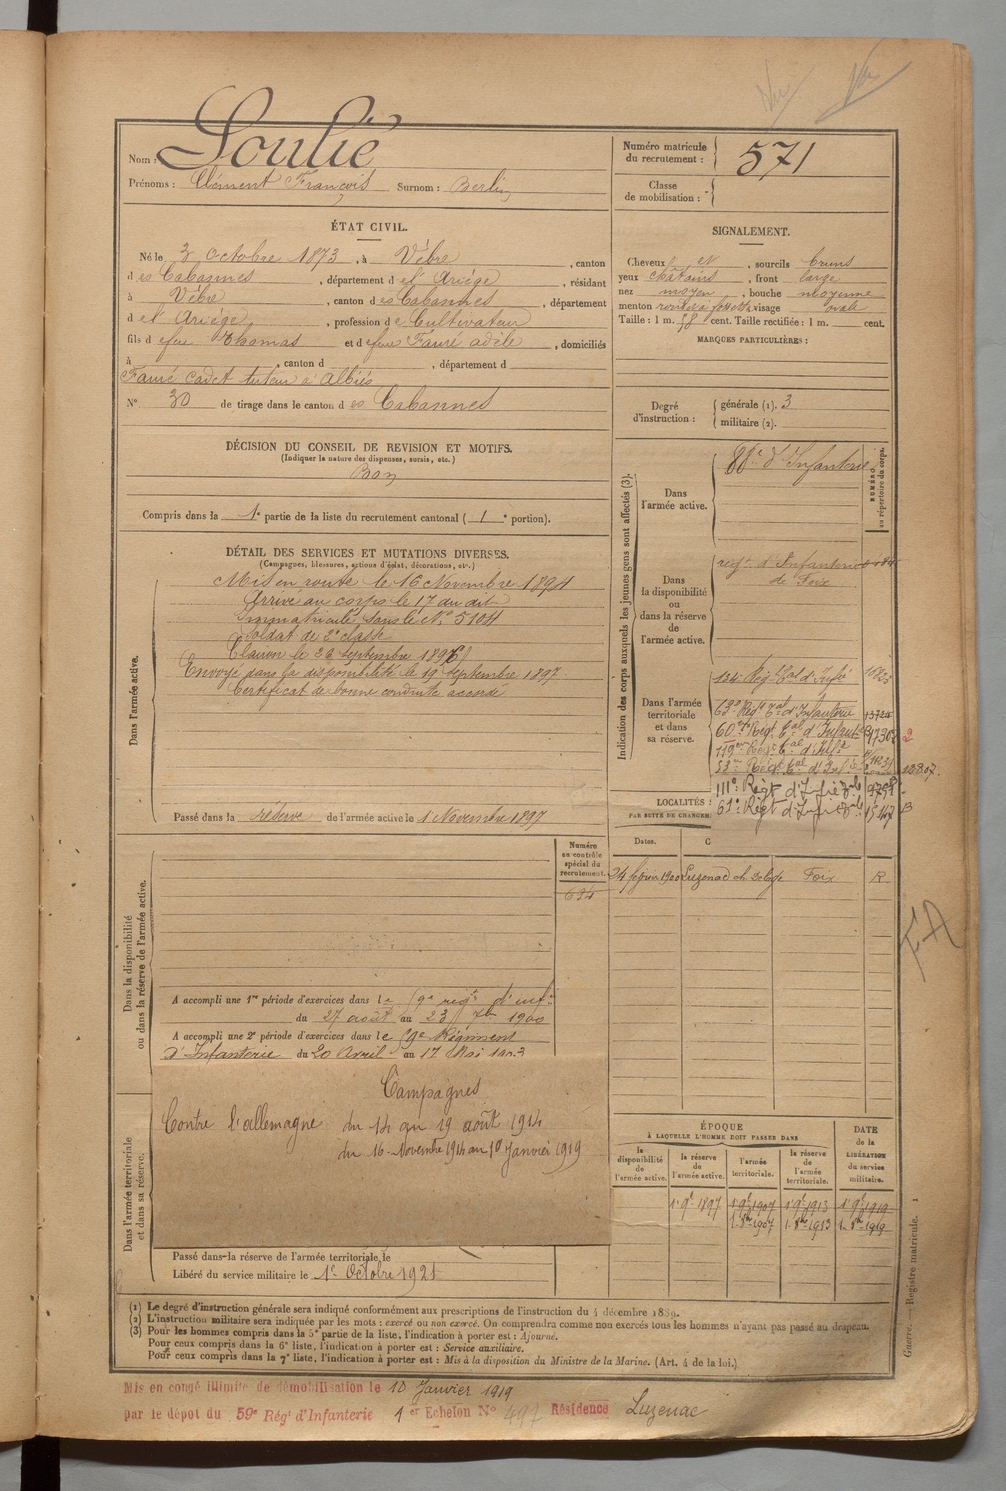 Nom : Soulié
Prénoms : Clément François Surnom : Berlin
Numéro matricule du recrutement : 571
Classe de mobilisation :
ÉTAT CIVIL.
Né le 3 octobre 1873, à Vèbre, canton
des Cabannes, département de l'Ariège, résidant
à Vèbre, canton des Cabannes, département
de l'Ariège, profession de Cultivateur
fils de feu Thomas et de feue Faure adèle, domiciliés
à , canton d , département d
Faure Cadet tuteur à Albiès
N° 30 de tirage dans le canton des Cabannes
SIGNALEMENT.
Cheveux et, sourcils bruns
yeux chatains, front large
nez moyen, bouche moyenne
menton rond à fossette, visage ovale
Taille : 1 m. 58 cent. Taille rectifiée : 1 m. cent.
MARQUES PARTICULIÈRES :
Degré d'instruction : générale (1). 3
militaire (2).
DÉCISION DU CONSEIL DE REVISION ET MOTIFS.
(Indiquer la nature des dispenses, sursis, etc.)
Bon
Compris dans la 1e partie de la liste du recrutement cantonal ( 1e portion).
DÉTAIL DES SERVICES ET MUTATIONS DIVERSES.
(Campagnes, blessures, actions d'éclat, décorations, etc.)
Dans l'armée active.
Mis en route le 16 Novembre 1894
Arrivé au corps le 17 du dit
Immatriculé sous le N° 5104
Soldat de 2e classe
Clairon le 26 septembre 1896
Envoyé dans la disponibilité le 19 septembre 1897
Certificat de bonne conduite accordé
Passé dans la réserve de l'armée active le 1 Novembre 1897
Indication des corps auxquels les jeunes gens sont affectés (3).
NUMÉRO au répertoire du corps.
Dans l'armée active.
88e d'Infanterie
Dans la disponibilité ou dans la réserve de l'armée active.
regt. d'Infanterie
de Foix
Dans l'armée territoriale et dans sa réserve.
134e Régt tal d'Infie
63e Régt tal d'Infanterie 13724
60e Régt tal d'Infant
119e Régt tal d'Infie
53e Régt tal d'Infie
111e Régt d'Infie
61e Régt d'Infie
LOCALITÉS
PAR SUITE DE CHANGEM
Dates.
C
24 février 1900 Luzenac Foix R
FA
Dans la disponibilité ou dans la réserve de l'armée active.
Numéro au contrôle spécial du recrutement.
634
A accompli une 1re période d'exercices dans le 59e régt d'infie
du 27 août au 23 7bre 1900
A accompli une 2e période d'exercices dans le 59e Régiment
d'Infanterie du 20 Avril au 17 Mai 1903
Dans l'armée territoriale et dans sa réserve.
Campagnes
Contre l'allemagne du 14 au 19 août 1914
du 16 Novembre 1914 au 10 Janvier 1919
Passé dans la réserve de l'armée territoriale le
Libéré du service militaire le 1er Octobre 1921
ÉPOQUE
À LAQUELLE L'HOMME DOIT PASSER DANS
la disponibilité de l'armée active.
la réserve de l'armée active.
l'armée territoriale.
la réserve de l'armée territoriale.
DATE de la LIBÉRATION du service militaire.
1er 9bre 1897 1er 9bre 1907 1er 9bre 1913 1er 9bre 1919
1er 8bre 1907 1er 8bre 1913 1er 8bre 1919
(1) Le degré d'instruction générale sera indiqué conformément aux prescriptions de l'instruction du 4 décembre 1889.
(2) L'instruction militaire sera indiquée par les mots : exercé ou non exercé. On comprendra comme non exercés tous les hommes n'ayant pas passé au drapeau.
(3) Pour les hommes compris dans la 5e partie de la liste, l'indication à porter est : Ajourné.
Pour ceux compris dans la 6e liste, l'indication à porter est : Service auxiliaire.
Pour ceux compris dans la 7e liste, l'indication à porter est : Mis à la disposition du Ministre de la Marine. (Art. 4 de la loi.)
Guerre. Registre matricule. 1
Mis en congé illimité de démobilisation le 10 Janvier 1919
par le dépôt du 59e Régt d'Infanterie 1er Echelon N° 497 Résidence Luzenac